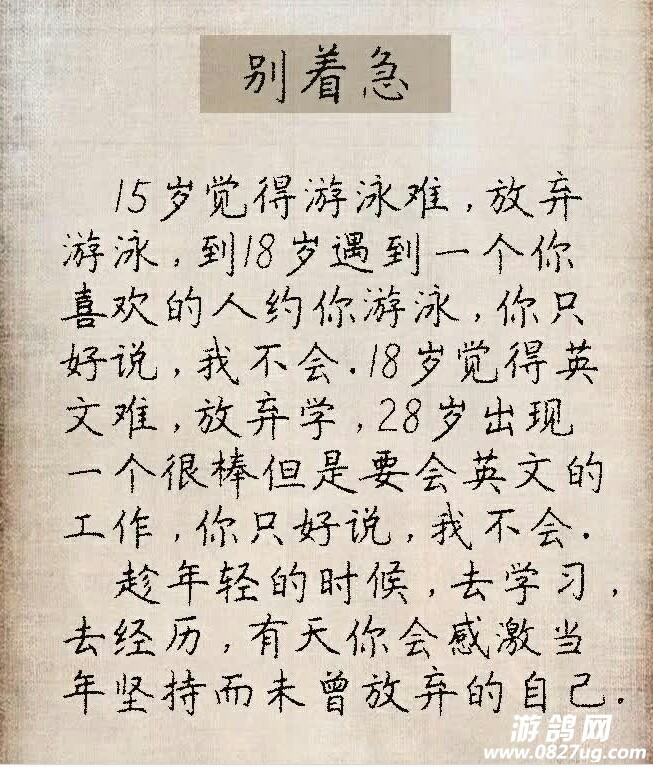 别着急
15岁觉得游泳难,放弃
游泳,到18岁遇到一个你
喜欢的人约你游泳,你只
好说,我不会.18岁觉得英
文难,放弃学,28岁出现
一个很棒但是要会英文的
工作,你只好说,我不会.
趁年轻的时候,去学习,
去经历,有天你会感激当
年坚持而未曾放弃的自己.
游鸽网
www.0827ug.com